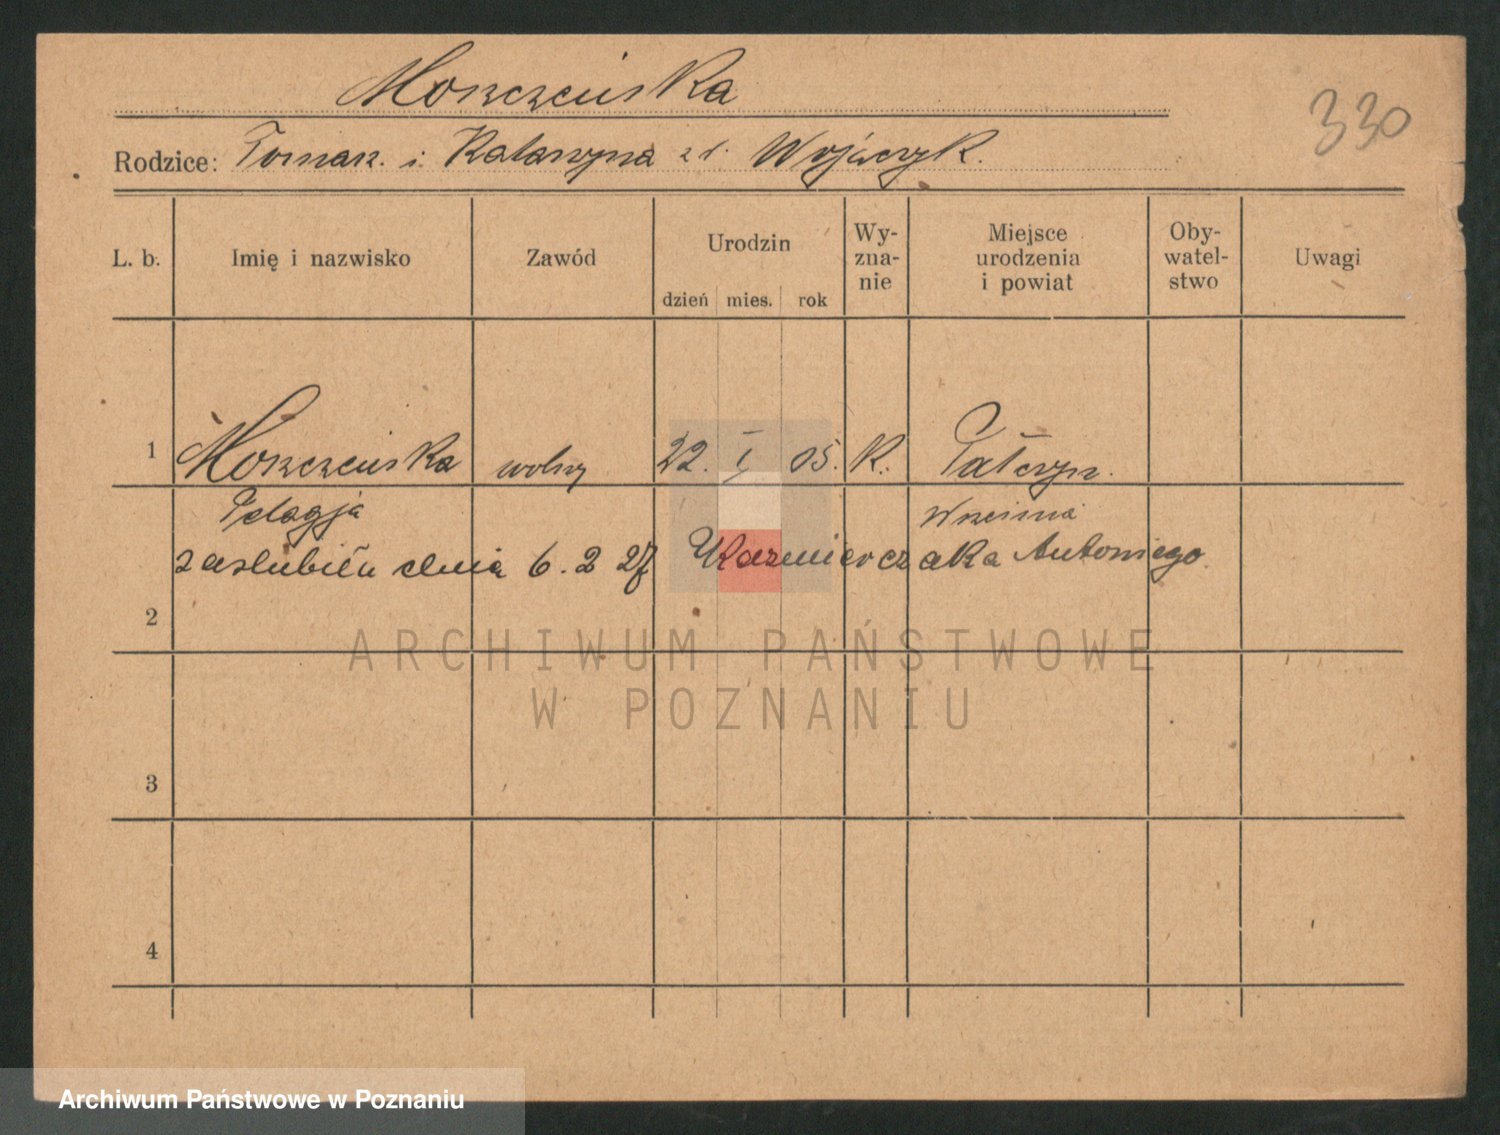 Moszczeńska
330
Rodzice: Tomasz i Katarzyna z d. Wojczyk.
L. b.
Imię i nazwisko
Zawód
Urodzin
dzień mies. rok
Wy-
zna-
nie
Miejsce
urodzenia
i powiat
Oby-
watel-
stwo
Uwagi
1 Moszczeńska wolny 22. I 05. K. Pałczyn.
Pelagja Września
zaślubiła dnia 6. 2 27 Kaźmierczaka Antoniego.
2
ARCHIWUM PAŃSTWOWE
W POZNANIU
3
4
Archiwum Państwowe w Poznaniu